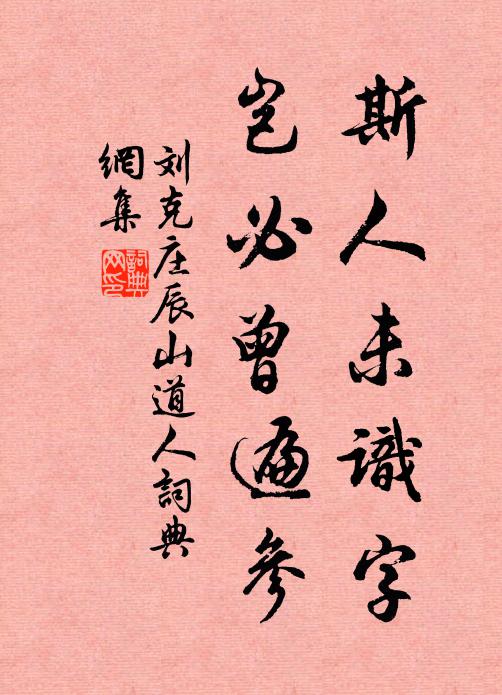 斯人未識字
豈必曾遍參
刘克庄辰山道人詞典
網集
詞典网印